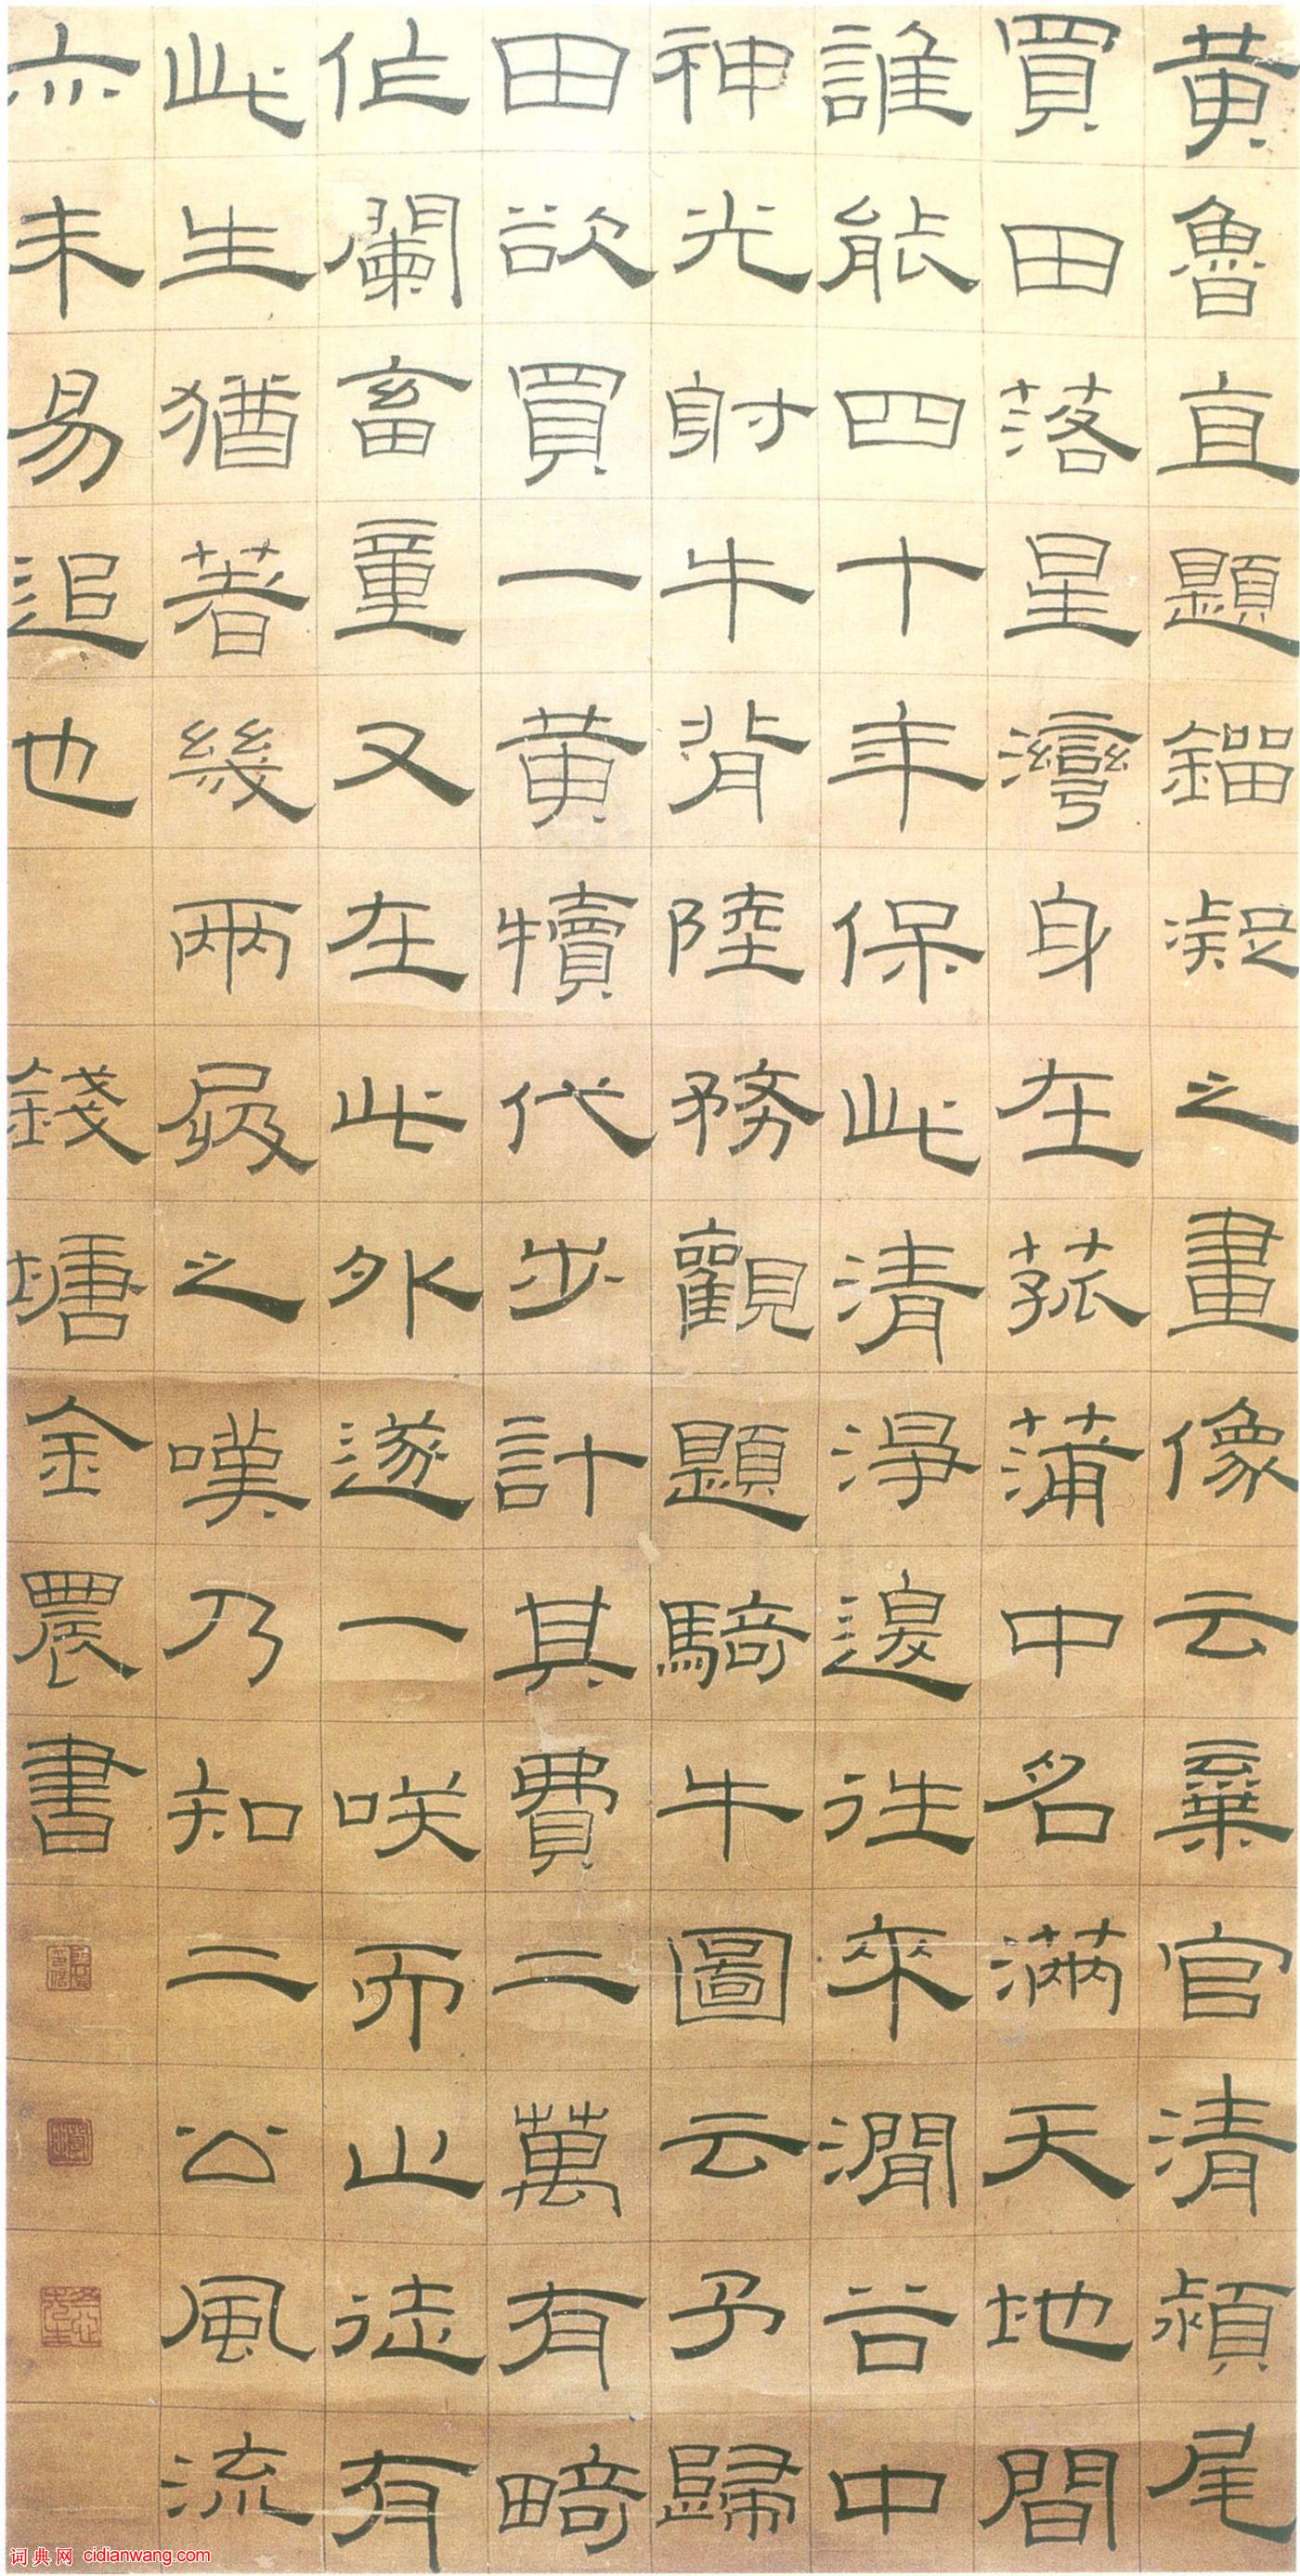 黄魯直題鎦凝之畫像云棄官清潁尾
買田落星灣身在菰蒲中名滿天地間
誰能四十年保此清淨邊往來澗谷中
神光射牛背陸務觀題騎牛圖云予歸
田欲買一黄犢代步計其費二萬有畸
作闌畜童又在此外遂一咲而止徒有
此生猶著幾兩屐之嘆乃知二公風流
亦未易追也 錢塘金農書
词典网 cidianwang.com